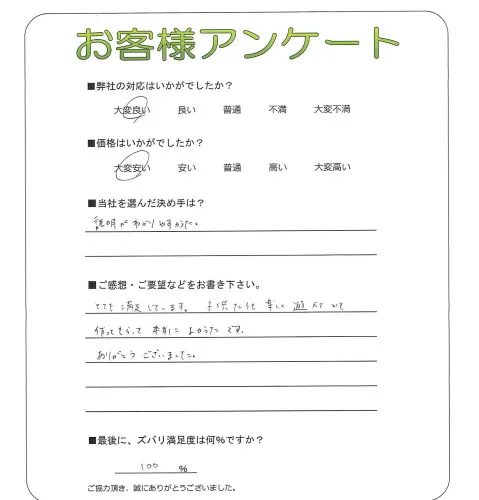 お客様アンケート
■弊社の対応はいかがでしたか？
大変良い 良い 普通 不満 大変不満
■価格はいかがでしたか？
大変安い 安い 普通 高い 大変高い
■当社を選んだ決め手は？
説明がわかりやすかった。
■ご感想・ご要望などをお書き下さい。
とても満足しています。子供たちも楽しく遊べていて
作ってもらって本当によかったです。
ありがとうございました。
■最後に、ズバリ満足度は何%ですか？
100 %
ご協力頂き、誠にありがとうございました。